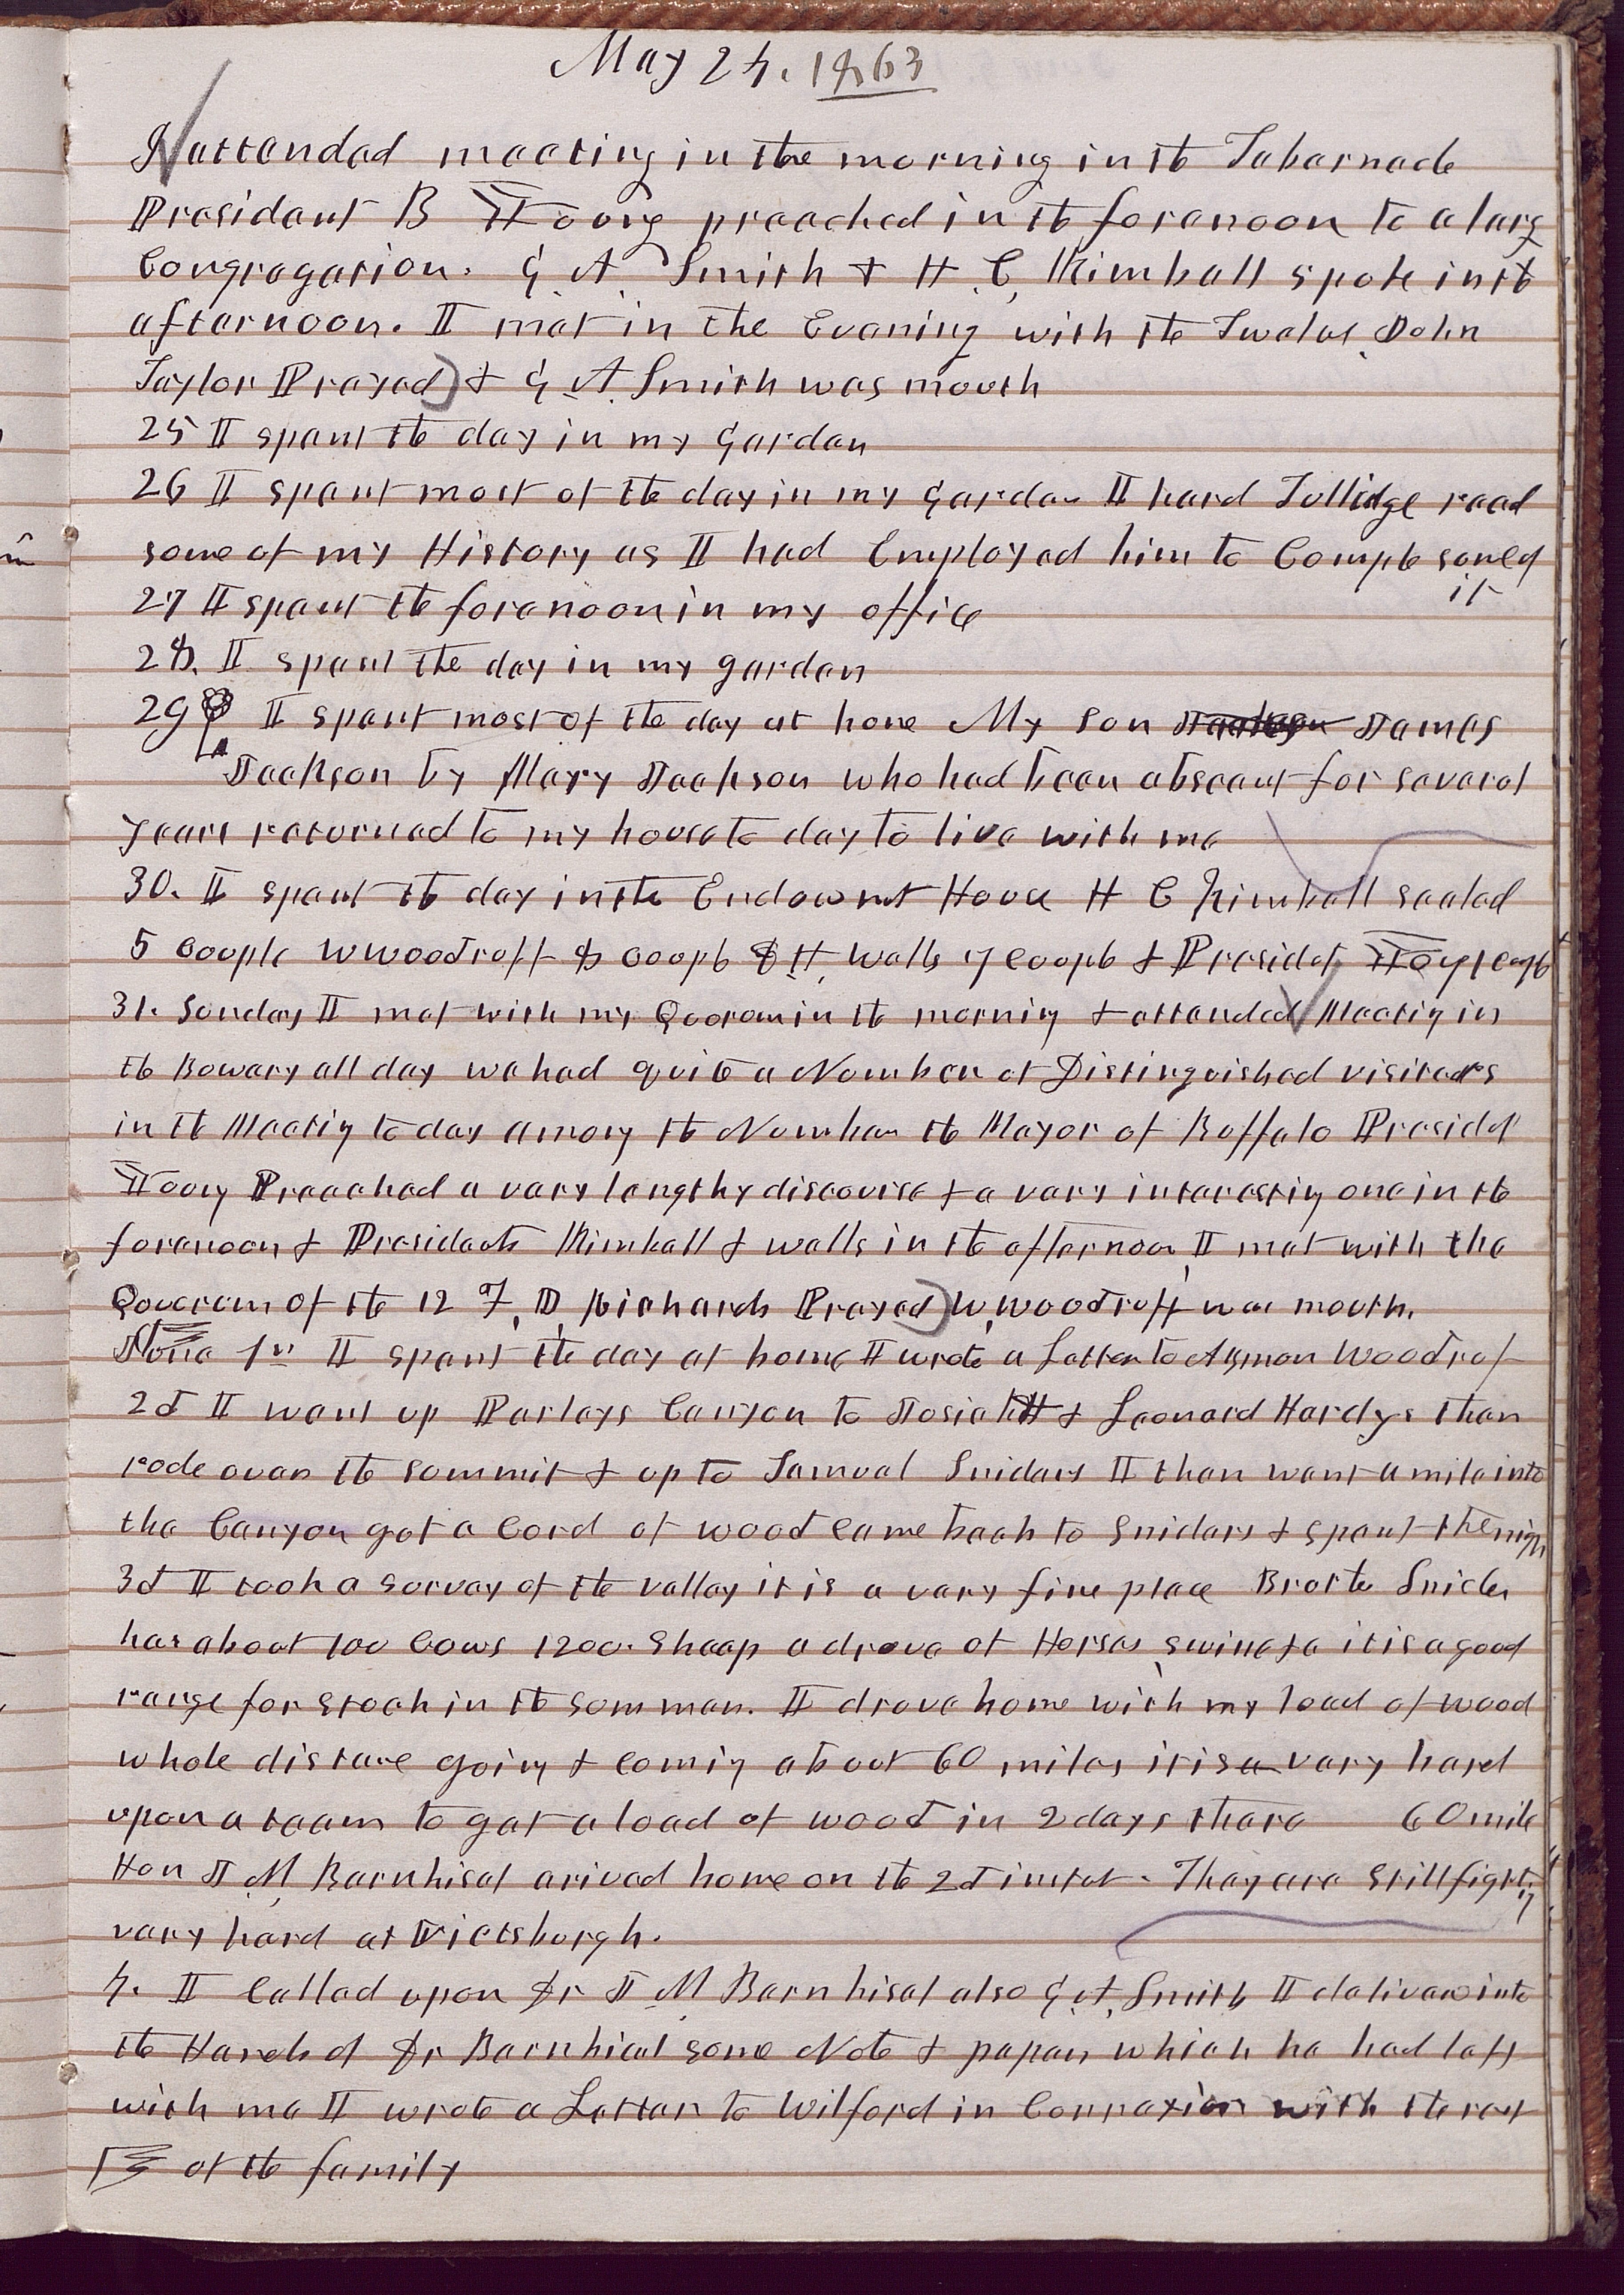 May 24. 1863
I attended meeting in the morning in the Tabernacle
President B Young preached in the forenoon to a larg
Congregation. G. A. Smith & H. C. Kimball spoke in the
afternoon. I met in the Evening with the Twelve John
Taylor Prayed) & G A. Smith was mouth
25 I spent the day in my garden
26 I spent most of the day in my garden I hard Tullidge read
some of my History as I had Employed him to Compile some of
it
27 I spent the forenoon in my office
28. I spent the day in my garden
29 I spent most of the day at home My son Jackson James
Jackson by Mary Jackson who had been abscent for several
years returned to my house to day to live with me
30. I spent the day in the Endowmt House H C Kimball sealed
5 couple W Woodruff 8 couple D. H. Wells 7 couple & Presidet Young 1 couple
31. Sunday I met with my Quorum in the morning & attended Meeting in
the Bowery all day we had quite a Number of Distinguished visitors
in the Meeting to day among the Number the Mayor of Buffalo Presidet
Young Preached a very lengthy discourse & a very interesting one in the
forenoon & Presidents Kimball & Wells in the afternoon I met with the
Quorum of the 12 F. D. Richards Prayed) W. Woodruff was mouth.
June 1st I spent the day at home I wrote a Letter to Azmon Woodruf
2d I went up Parleys Canyon to Josiah & Leonard Hardys then
rode over the summit & up to Samuel Sniders I then went a mile into
the Canyon got a Cord of wood came back to Sniders & spent the nigh
3d I took a survey of the valley it is a very fine place Brother Snider
has about 100 Cows 1200. Sheep a drove of Horses, swine &c it is a good
range for stock in the summer. I drove home with my load of wood
whole distance going & coming about 60 miles it is a very hard
upon a team to get a load of wood in 2 days there 60 mile
Hon J M Barnhisel arived home on the 2d instet. They are still fighting
very hard at Vicksburgh.
4. I Called upon Dr J M Barnhisel also G. A. Smith I deliverd into
the Hands of Dr Barnhisel some Note & papers which he had left
with me I wrote a Letter to Wilford in Connexion with the rest
of the family